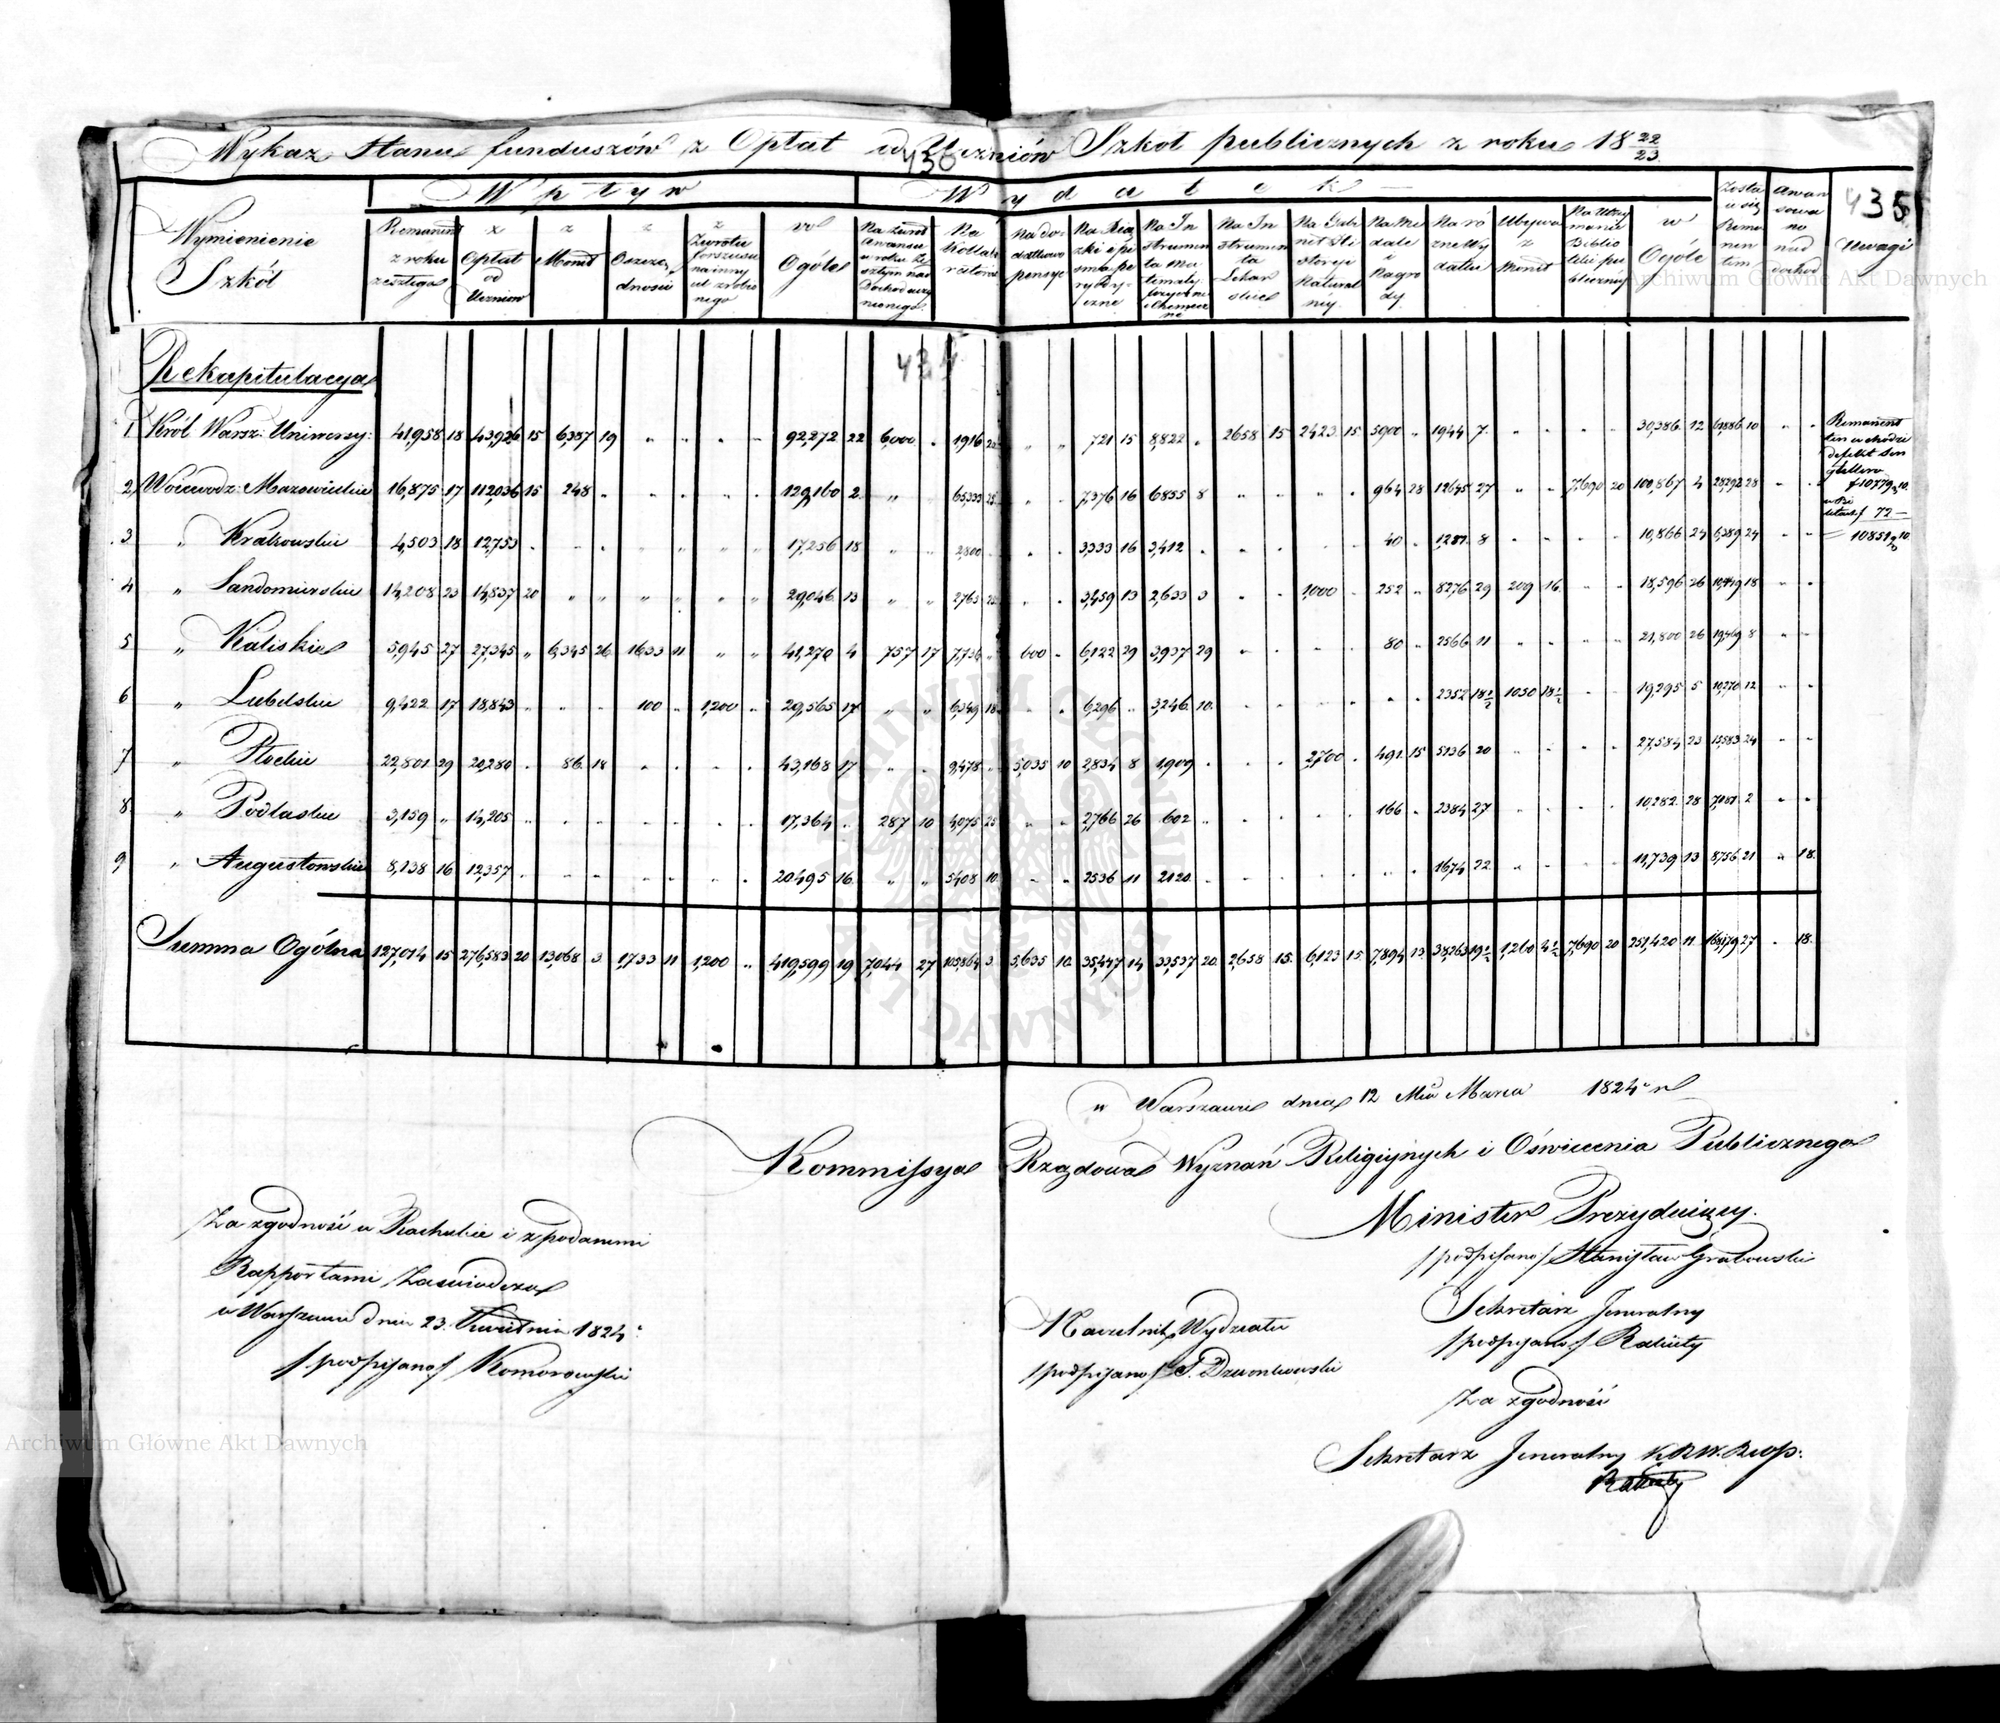 Wykaz Stanu funduszów z Opłat od Uczniów Szkół publicznych z roku 18 22/23
436
Wpływ Wydatek
435
Wymienienie Szkół
Remanent z roku zeszłego
z Opłat od Uczniów
z Monit
z Oszczędności
z Zwrotu forszusu na inny cel zrobionego
w Ogóle
Na zwrot Awansu w roku zeszłym nad Dochod uczynionego
Na
Na dodatkowe pensye
Na Książki i pisma peryodyczne
Na Instrumenta Matematy: fizyczne i Chemiczne
Na Instrumenta Lekarskie
Na Gabinet Historyi Naturalnéy
Na Medale i Nagrody
Na różne Wydatki
Ubywa z Monit
Na Utrzymanie Biblioteki publicznéy
w Ogóle
Zostaie się Remanentim
Awansowano nad dochod
Uwagi
Archiwum Główne Akt Dawnych
434
Rekapitulacya
1. Król Warsz: Uniwersy: 41,958 18 43,926 15 6,387 19 " " " " 92,272 22 6,000 " 1916 22 " " 721 15 8,822 " 2658 15 2423 15 5900 " 1944 7 " " " " 30,386 12 61,886 10 " "
Remanent
10779
72 —
10851
2, Woiewodz: Mazowieckie 16,875 17 112,036 15 248 " " " " " 129,160 2 " " 65,333 25 " " 7,376 16 6855 8 " " " " 964 28 12645 27 " " 7,690 20 100,867 4 28,292 28 " "
3 " Krakowskie 4,503 18 12,753 " " " " " " " 17,256 18 " " 2,800 " " " 3,333 16 3,412 " " " " " 40 " 1,281 8 " " " " 10,866 24 6,389 24 " "
4 " Sandomierskie 14,208 23 14,837 20 " " " " " " 29,046 13 " " 2,763 25 " " 3,459 13 2,633 3 " " 1,000 " 252 " 8,276 29 209 16 " " 18,596 26 10,449 18 " "
5 " Kaliskie 5,945 27 27,345 " 6,345 26 1633 11 " " 41,270 4 757 17 7,736 " 600 " 6,122 29 3,937 29 " " " " 80 " 2566 11 " " " " 21,800 26 19,469 8 " "
6 " Lubelskie 9,422 17 18,843 " " " 100 " 1,200 " 29,565 17 " " 6,349 18 " " 6,296 " 3,246 10 " " " " " " 2352 18½ 1050 18½ " " 19,295 5 10,270 12 " "
7 " Płockie 22,801 29 20,280 " 86 18 " " " " 43,168 17 " " 9,478 " 5,035 10 2,834 8 1,909 " " " 2,700 " 491 15 5136 20 " " " " 27,584 23 15,583 24 " "
8 " Podlaskie 3,159 " 14,205 " " " " " " " 17,364 " 287 10 4,075 25 " " 2,766 26 602 " " " " " 166 " 2384 27 " " " " 10,282 28 7,081 2 " "
9 " Augustowskie 8,138 16 12,357 " " " " " " " 20,495 16 " " 5,408 10 " " 2536 11 2120 " " " " " " " 1674 22 " " " " 11,739 13 8,756 21 " 18
Summa Ogólna 127,014 15 276,583 20 13,068 3 1,733 11 1,200 " 419,599 19 7,044 27 105,864 3 5,635 10 35,447 14 33,537 20 2,658 15 6,123 15 7,894 13 38,263 19½ 1,260 4½ 7,690 20 251,420 11 168,179 27 " 18
w Warszawie dnia 12 Mca Marca 1824 r
Kommissya Rządowa Wyznań Religiynych i Oświecenia Publicznego
Minister Prezyduiący.
/podpisano/ Stanisław Grabowski
Za zgodność w Rachubie i z podanemi
Rapportami Zaświadcza
w Warszawie dnia 23. Kwietnia 1824
/podpisano/ Komorowski
Naczelnik Wydziału
/podpisano/ Dziewonkowski
Sekretarz Jeneralny
/podpisano/
Za zgodność
Sekretarz Jeneralny
Archiwum Główne Akt Dawnych
ARCHIWUM GŁÓWNE AKT DAWNYCH